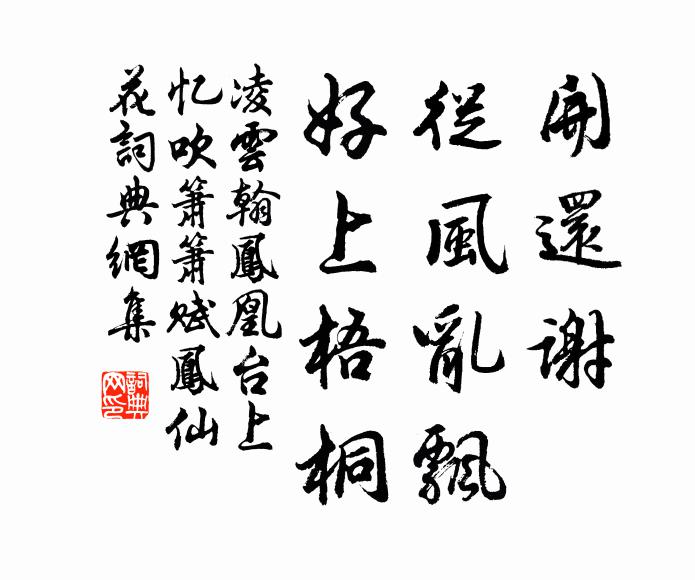 開還謝
從風亂飄
好上梧桐
凌雲翰鳳凰台上
忆吹簫簫賦鳳仙
花詞典網集
詞典
网印